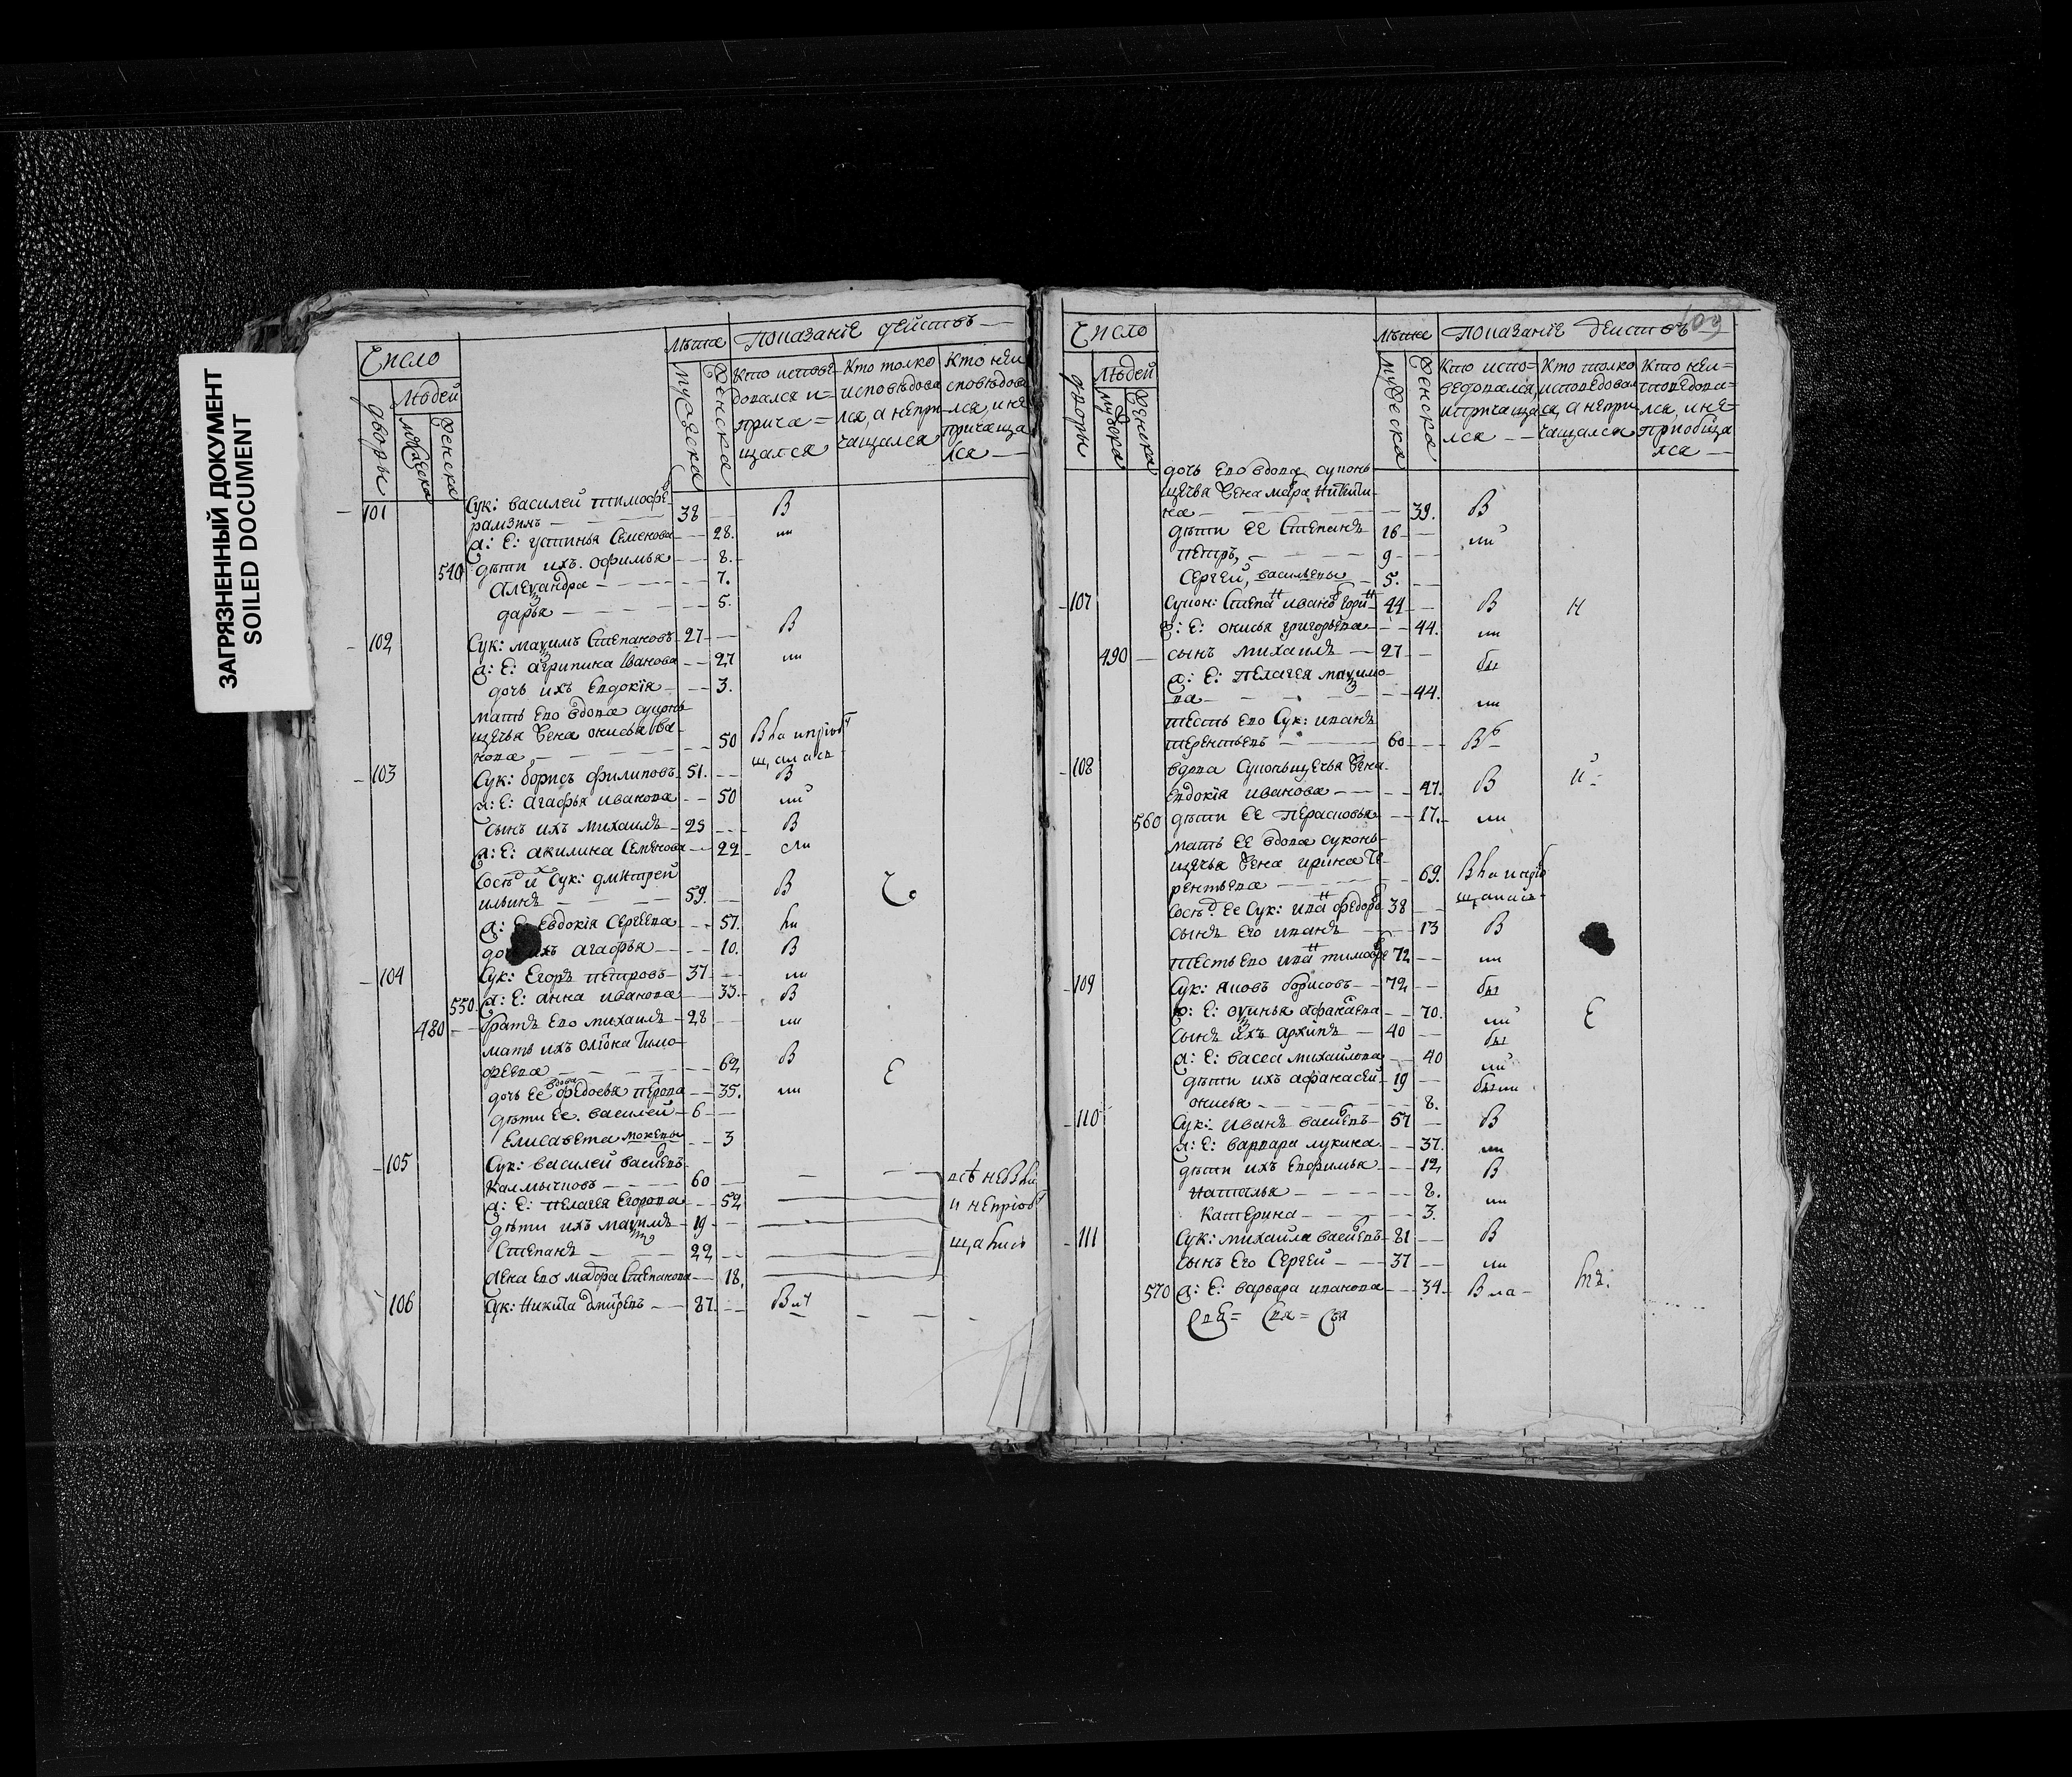 ЗАГРЯЗНЕННЫЙ ДОКУМЕНТ
SOILED DOCUMENT
Число
Людей
дворы
мужеска
женска
лѣта
мужеска
женска
Показанїе действъ
Кто испове-
довался и=
прича=
щался
Кто толко
исповѣдова
лся, а непри-
чащался
Кто неи
сповѣдова
лся, и не
причаща
лся
101 Сук: василей тимофѣ
рамзинъ 38 В
ж: Е: устинья Семенова 28. ли
540 дѣти ихъ. офимья 8.
Алеѯандра 7.
дарья 5.
102 Сук: маѯимъ Степановъ 27 В
ж: Е: агрипина Иванова 27 ли
дочь ихъ Евдокїя 3.
мать Его вдова суконь
щечья жена онисья Ива-
нова 50
103 Сук: борисъ филиповъ 51. В
ж: Е: агафья иванова 50 ли
сынъ ихъ михаилъ 25 В
ж: Е: акилина Семенова 22
Сосѣд их Сук: дмитрей
ильинъ 59. В
ж: Е: Евдокїя Сергеева 57.
дочь ихъ агафья 10. В
104 Сук: Егоръ петровъ 37 ли
550 ж: Е: анна иванова 33. В
480 братъ Его михаилъ 28 ли
мать ихъ
фѣева 62 В
дочь Ее вдова федосья петрова 35. ли Е
дѣти Ее. василей 6
Елисавета мокеевы 3
105 Сук: василей васильевъ
калмычковъ 60
ж: Е: пелагея Егорова 52
дѣти ихъ маѯимъ 19
Степанъ 22
жена Его мавра Степанова 18.
106 Сук: Никита дмитревъ 87.
109
Число
Людей
дворы
мужска
женска
лѣта
мужеска
женска
Показанїе действъ
Кто испо=
ведовался,
и причаща
лся
Кто толко
исповедовал
ся, а непри
чащался
Кто неи=
споведова=
лся, и не=
приобща
лся
дочь Его вдова суконь
щечья жена мавра никити-
на 39. В
дѣти ее Степанъ 16 ли
петръ, 9
Сергей, васильевы 5.
107 44 В н
ж: Е: онисья григорьева 44. ли
490 сынъ михаилъ 27 бы
ж: Е: пелагея маѯимо-
ва 44. ли
тесть Его Сук: иванъ
терентьевъ 60
108 вдова Суконьщечья жена
Евдокїя иванова 47. В
560 дѣти ее Парасковья 17. ли
мать ее вдова суконь-
щечья жена ирина те
рентьева 69.
Сосѣд. ее Сук: иван федоров 38
сынъ Его иванъ 13 В
тесть Его иван тимофе 72 ли
109 Сук: яковъ борисовъ 72 бы
ж: Е: аѳанасева 70. ли Е
сынъ ихъ архипъ 40 бы
ж: Е: васса михайлова 40 ли
дѣти ихъ афанасей 19 были
онисья 8.
110 Сук: иванъ васильевъ 57 В
ж: Е: варвара лукина 37. ли
дѣти ихъ Евфимья 12 В
наталья 8. ли
катерина 3.
111 Сук: михаила васильевъ 81 В
сынъ Его Сергей 37 ли
570 ж: Е: варвара иванова 34